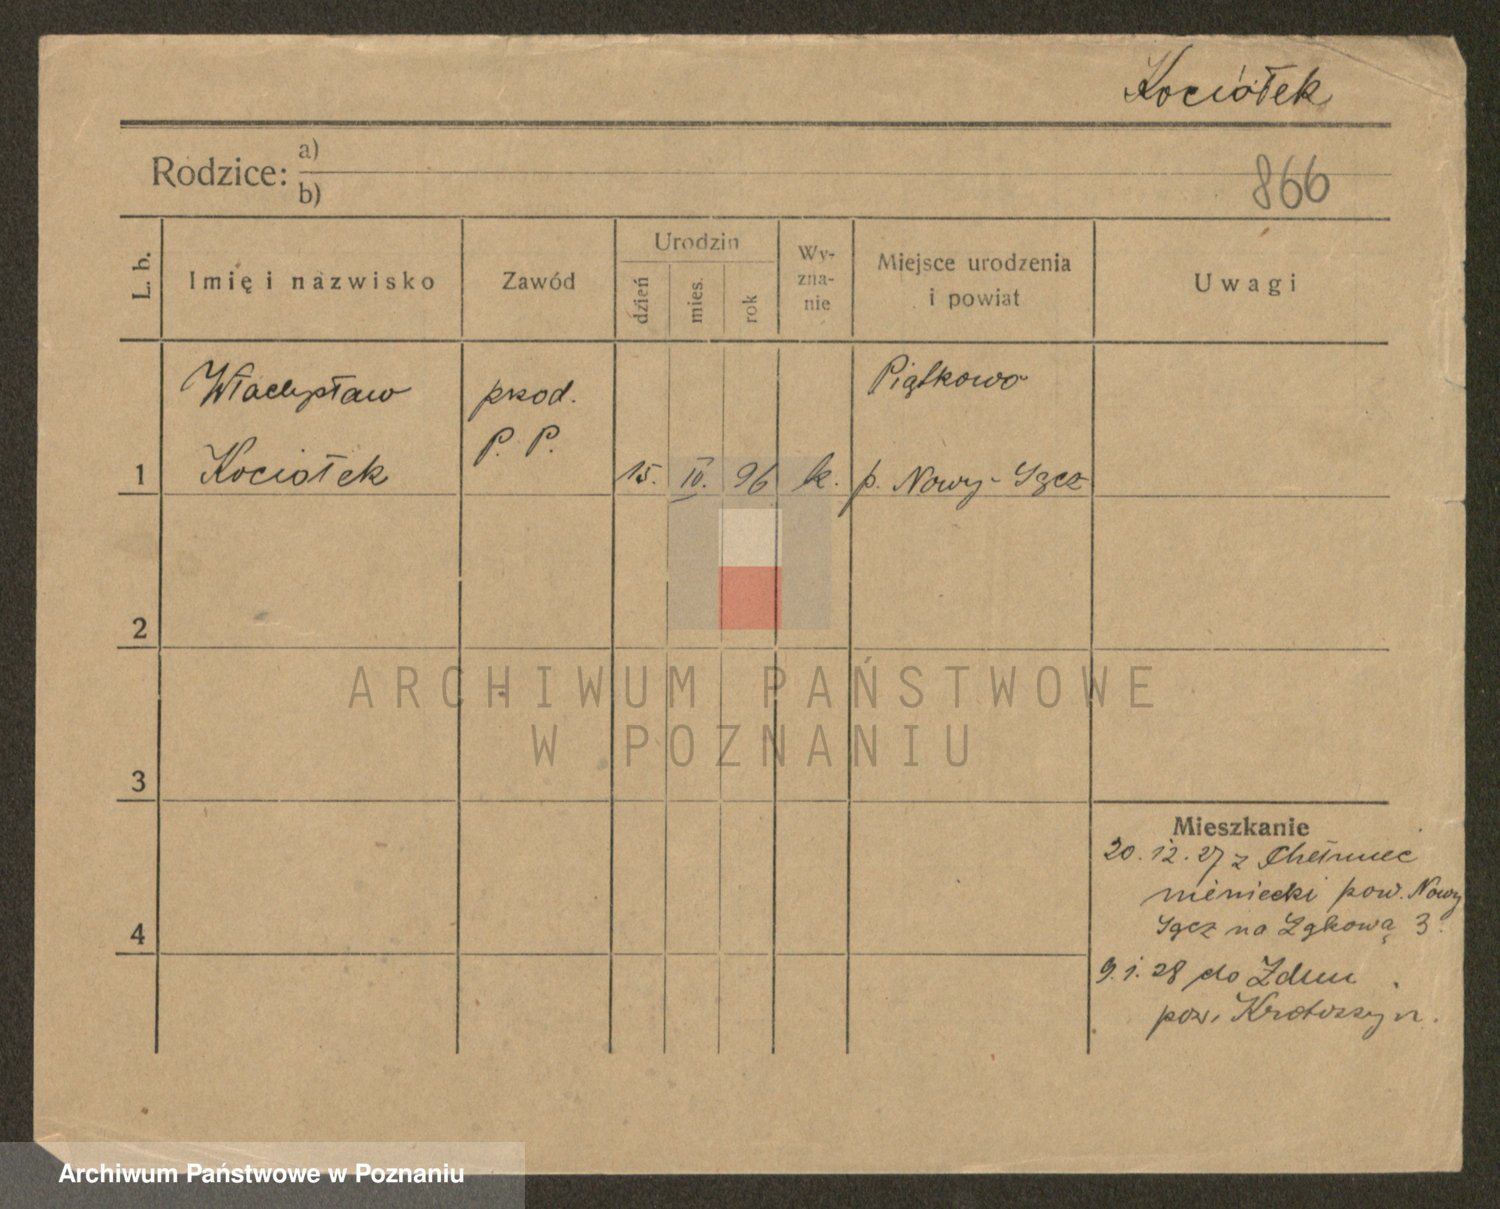 Kociółek
Rodzice: a)
b)
866
L. b.
Imię i nazwisko
Zawód
Urodzin
dzień
mies.
rok
Wy-
zna-
nie
Miejsce urodzenia
i powiat
Uwagi
Władysław
przod.
Piątkowo
P. P.
1
Kociołek
15. IV. 96
k.
p. Nowy-Sącz
2
ARCHIWUM PAŃSTWOWE
W POZNANIU
3
Mieszkanie
20.12.27 z Chełmiec
niemiecki pow. Nowy
Sącz na Łąkową 3.
4
9.1.28 do Zdun
pow. Krotoszyn.
Archiwum Państwowe w Poznaniu